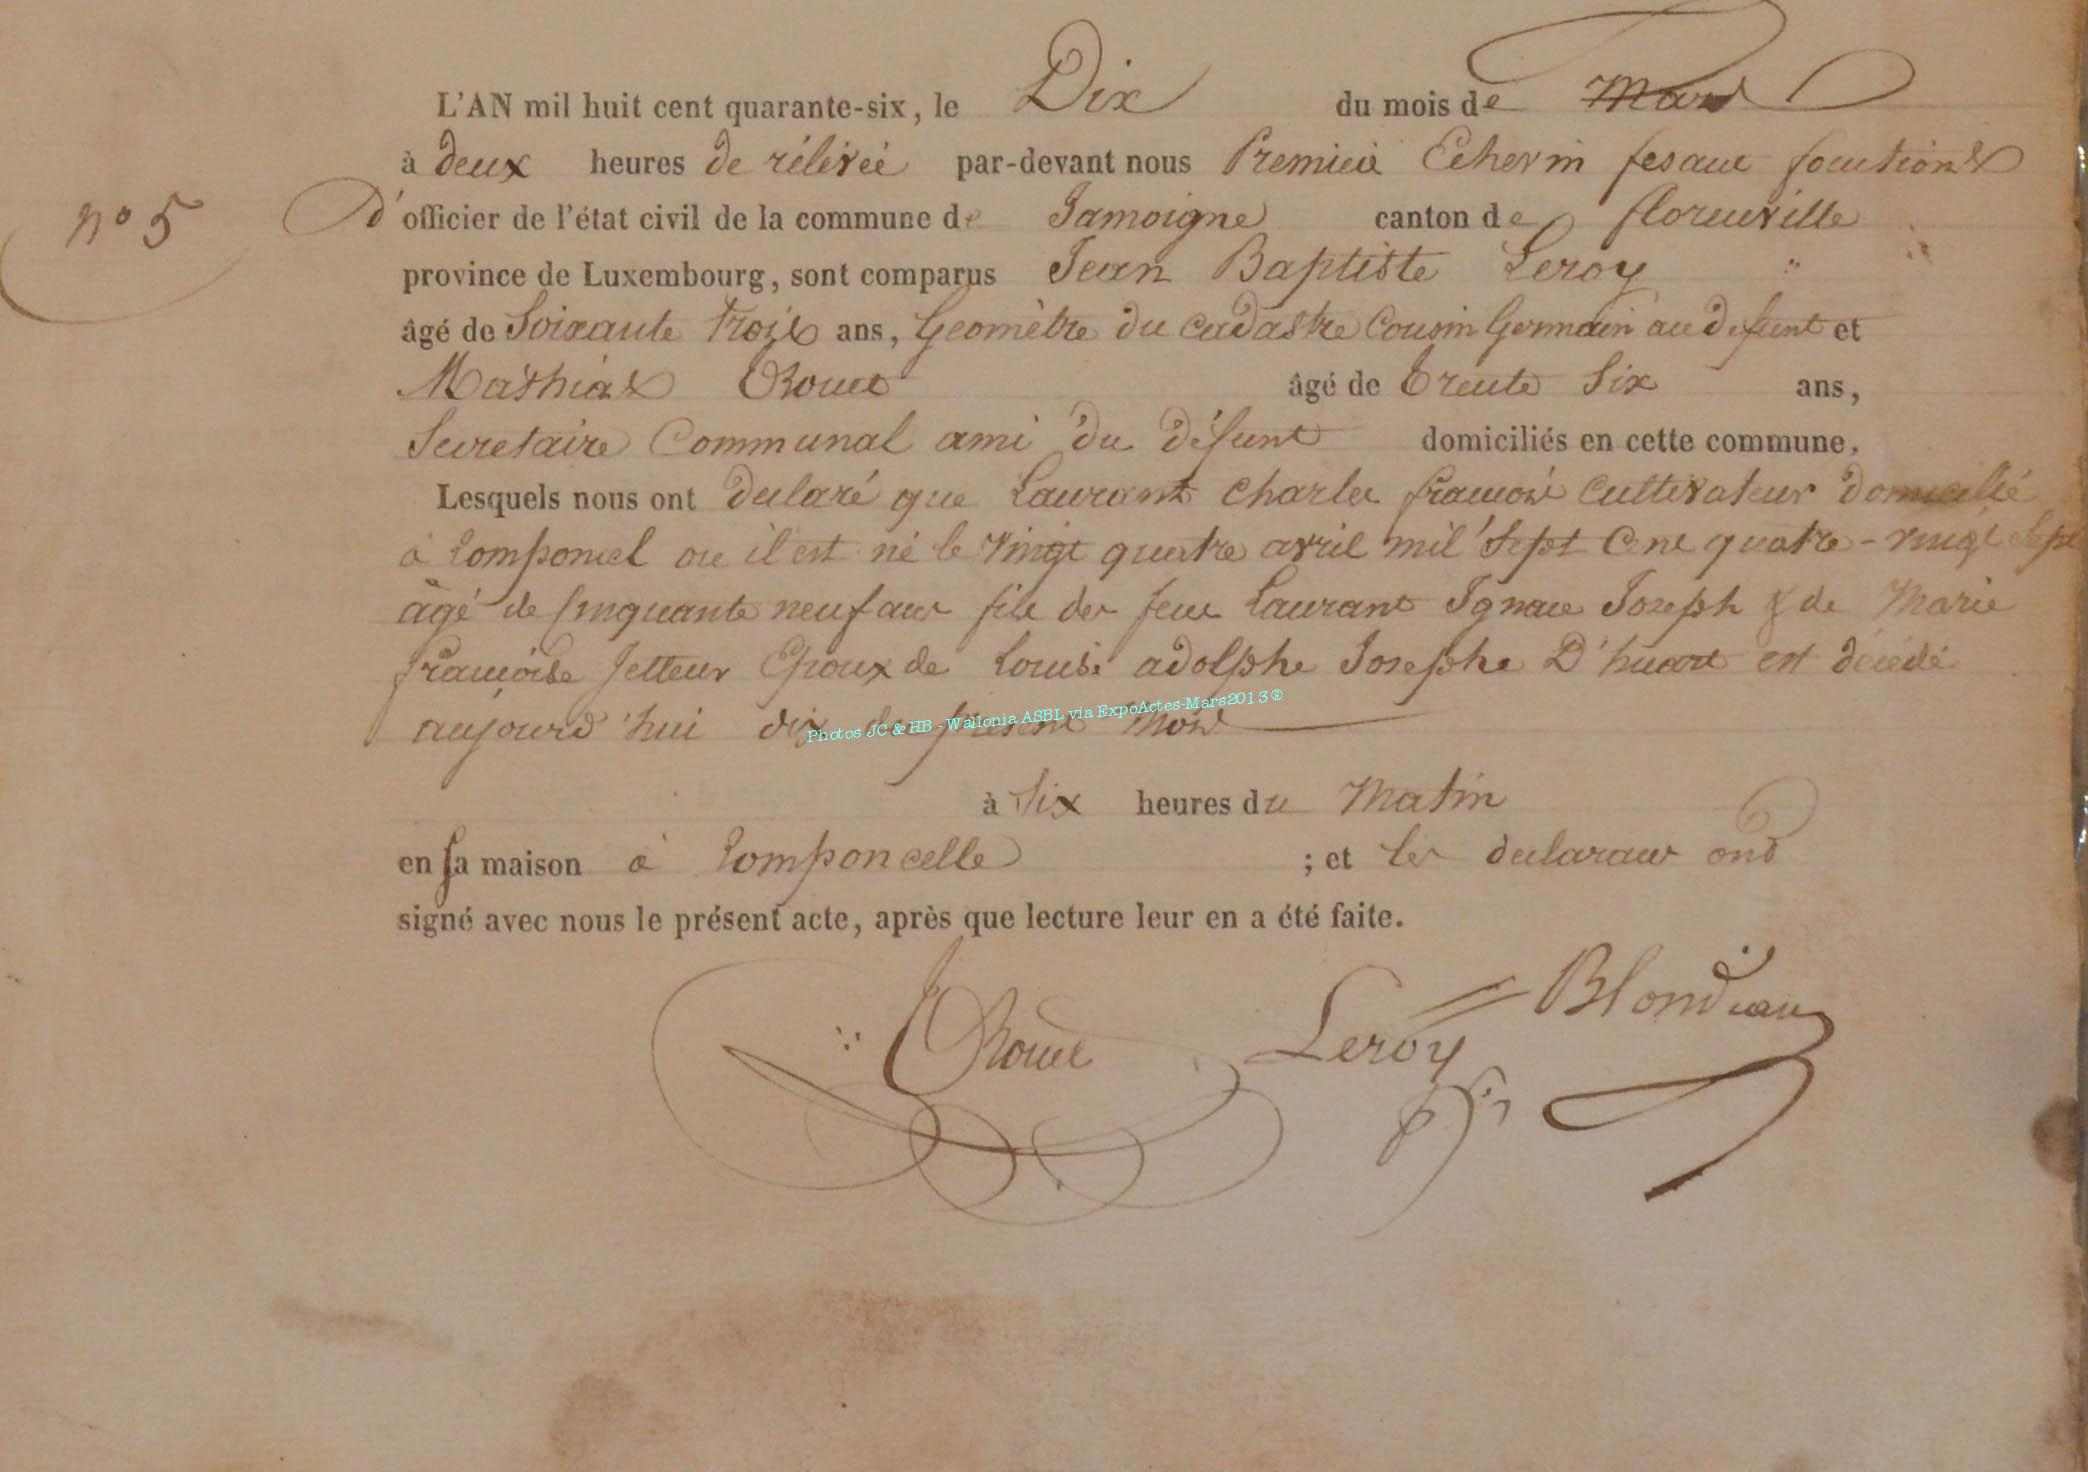 L'AN mil huit cent quarante-six, le Dix du mois de Mars
à deux heures de rélévée par-devant nous Premier Echevin fesant
n° 5
d'officier de l'état civil de la commune de Jamoigne canton de florenville
province de Luxembourg, sont comparus Jean Baptiste Leroy
âgé de Soixante trois ans, Geomètre du cadastre Cousin Germain au defunt et
Mathias Rouet âgé de trente Six ans,
Secretaire Communal ami du défunt domiciliés en cette commune,
Lesquels nous ont declaré que Laurant Charles françois cultivateur domicillié
à Romponcel ou il est né le vingt quatre avril mil Sept Cent quatre-vingt Sept
âgé de cinquante neuf ans fils des feux Laurant Ignace Joseph & de Marie
françoise Jetteur Epoux de Louise adolphe Josephe D'huart est décédé
aujourd'hui dix du présent mois
Photos JC & HB - Wallonia ASBL via ExpoActes-Mars2013©
à Six heures du Matin
en sa maison à Romponcelle ; et les declarans ont
signé avec nous le présent acte, après que lecture leur en a été faite.
Rouet Leroy Blondiau